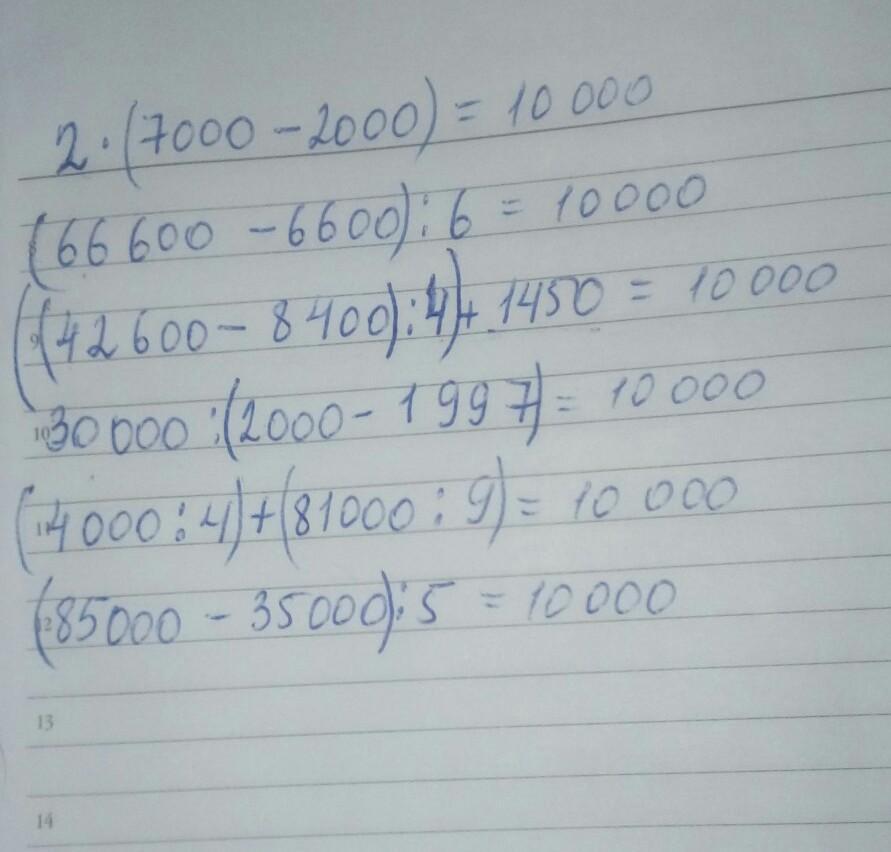 2·(7000-2000)=10 000
(66 600-6600):6=10000
((42600-8400):4)+1450=10000
10 30000:(2000-1997)=10 000
11 (4000:4)+(81000:9)=10 000
12 (85000-35000):5=10000
13
14